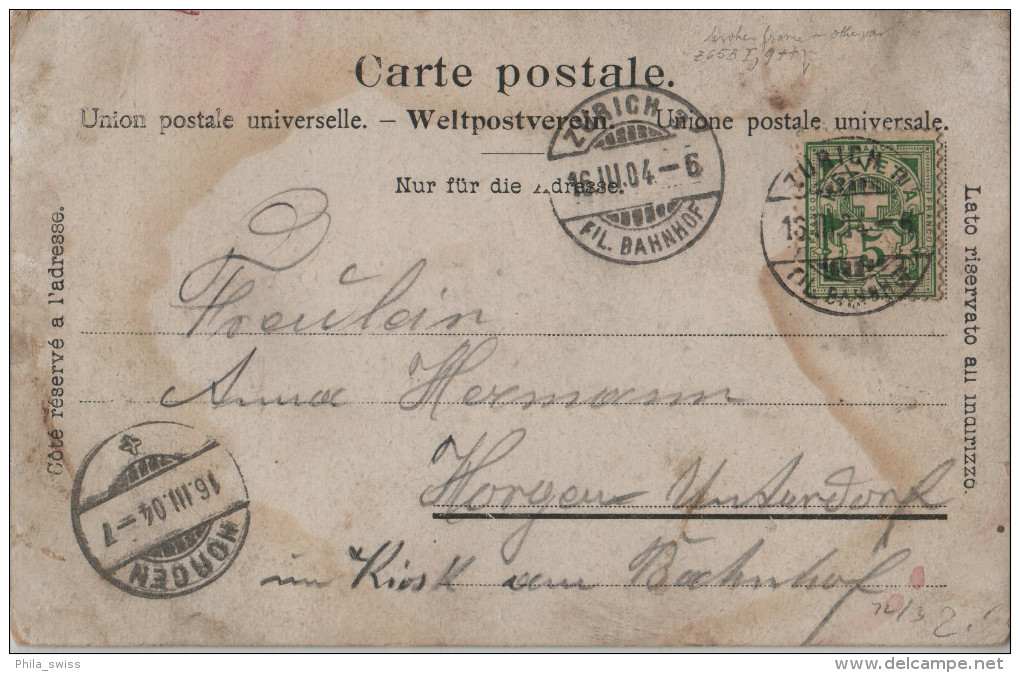 Carte postale.
Union postale universelle. – Weltpostverein. – Unione postale universale.
Nur für die Adresse.
Côté réservé à l'adresse.
Lato riservato all indirizzo.
ZÜRICH
16.III.04 – 6
FIL. BAHNHOF
ZÜRICH
FIL. BAHNHOF
HELVETIA
FRANCO
5
Fräulein
Anna Hermann
Horgen Unterdorf
im Kiosk am Bahnhof
16.III.04 – 7
HORGEN
Phila_swiss
www.delcampe.net